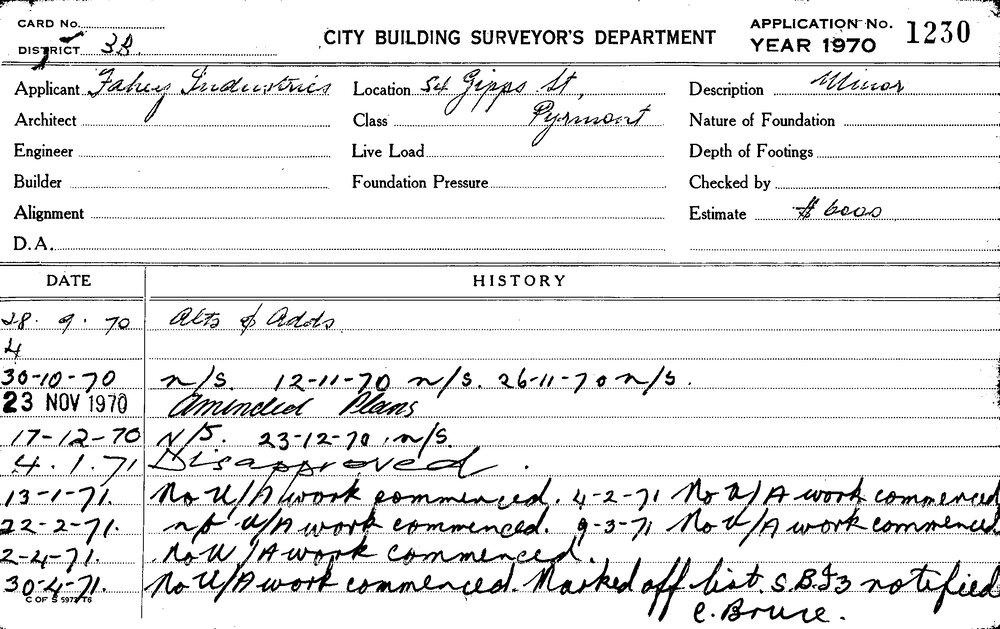 CARD No.
DISTRICT 3B.
CITY BUILDING SURVEYOR'S DEPARTMENT
APPLICATION No. 1230
YEAR 1970
Applicant Fahey Industries Location 54 Gipps St, Description Minor
Architect Class Pyrmont Nature of Foundation
Engineer Live Load Depth of Footings
Builder Foundation Pressure Checked by
Alignment Estimate $ 6000
D.A.
DATE HISTORY
28. 9. 70 Alts & Adds.
4
30-10-70 n/s. 12-11-70 n/s. 26-11-70 n/s.
23 NOV 1970 Amended Plans
17-12-70 N/S. 23-12-70. n/s.
4. 1. 71 Disapproved.
13-1-71. No U/A work commenced. 4-2-71 No U/A work commenced
22-2-71. no U/A work commenced. 9-3-71 No U/A work commenced
2-4-71. No U/A work commenced.
30-4-71. No U/A work commenced. Marked off list. S.B.I3 notified
C OF S 5973/76
C. Bruce.